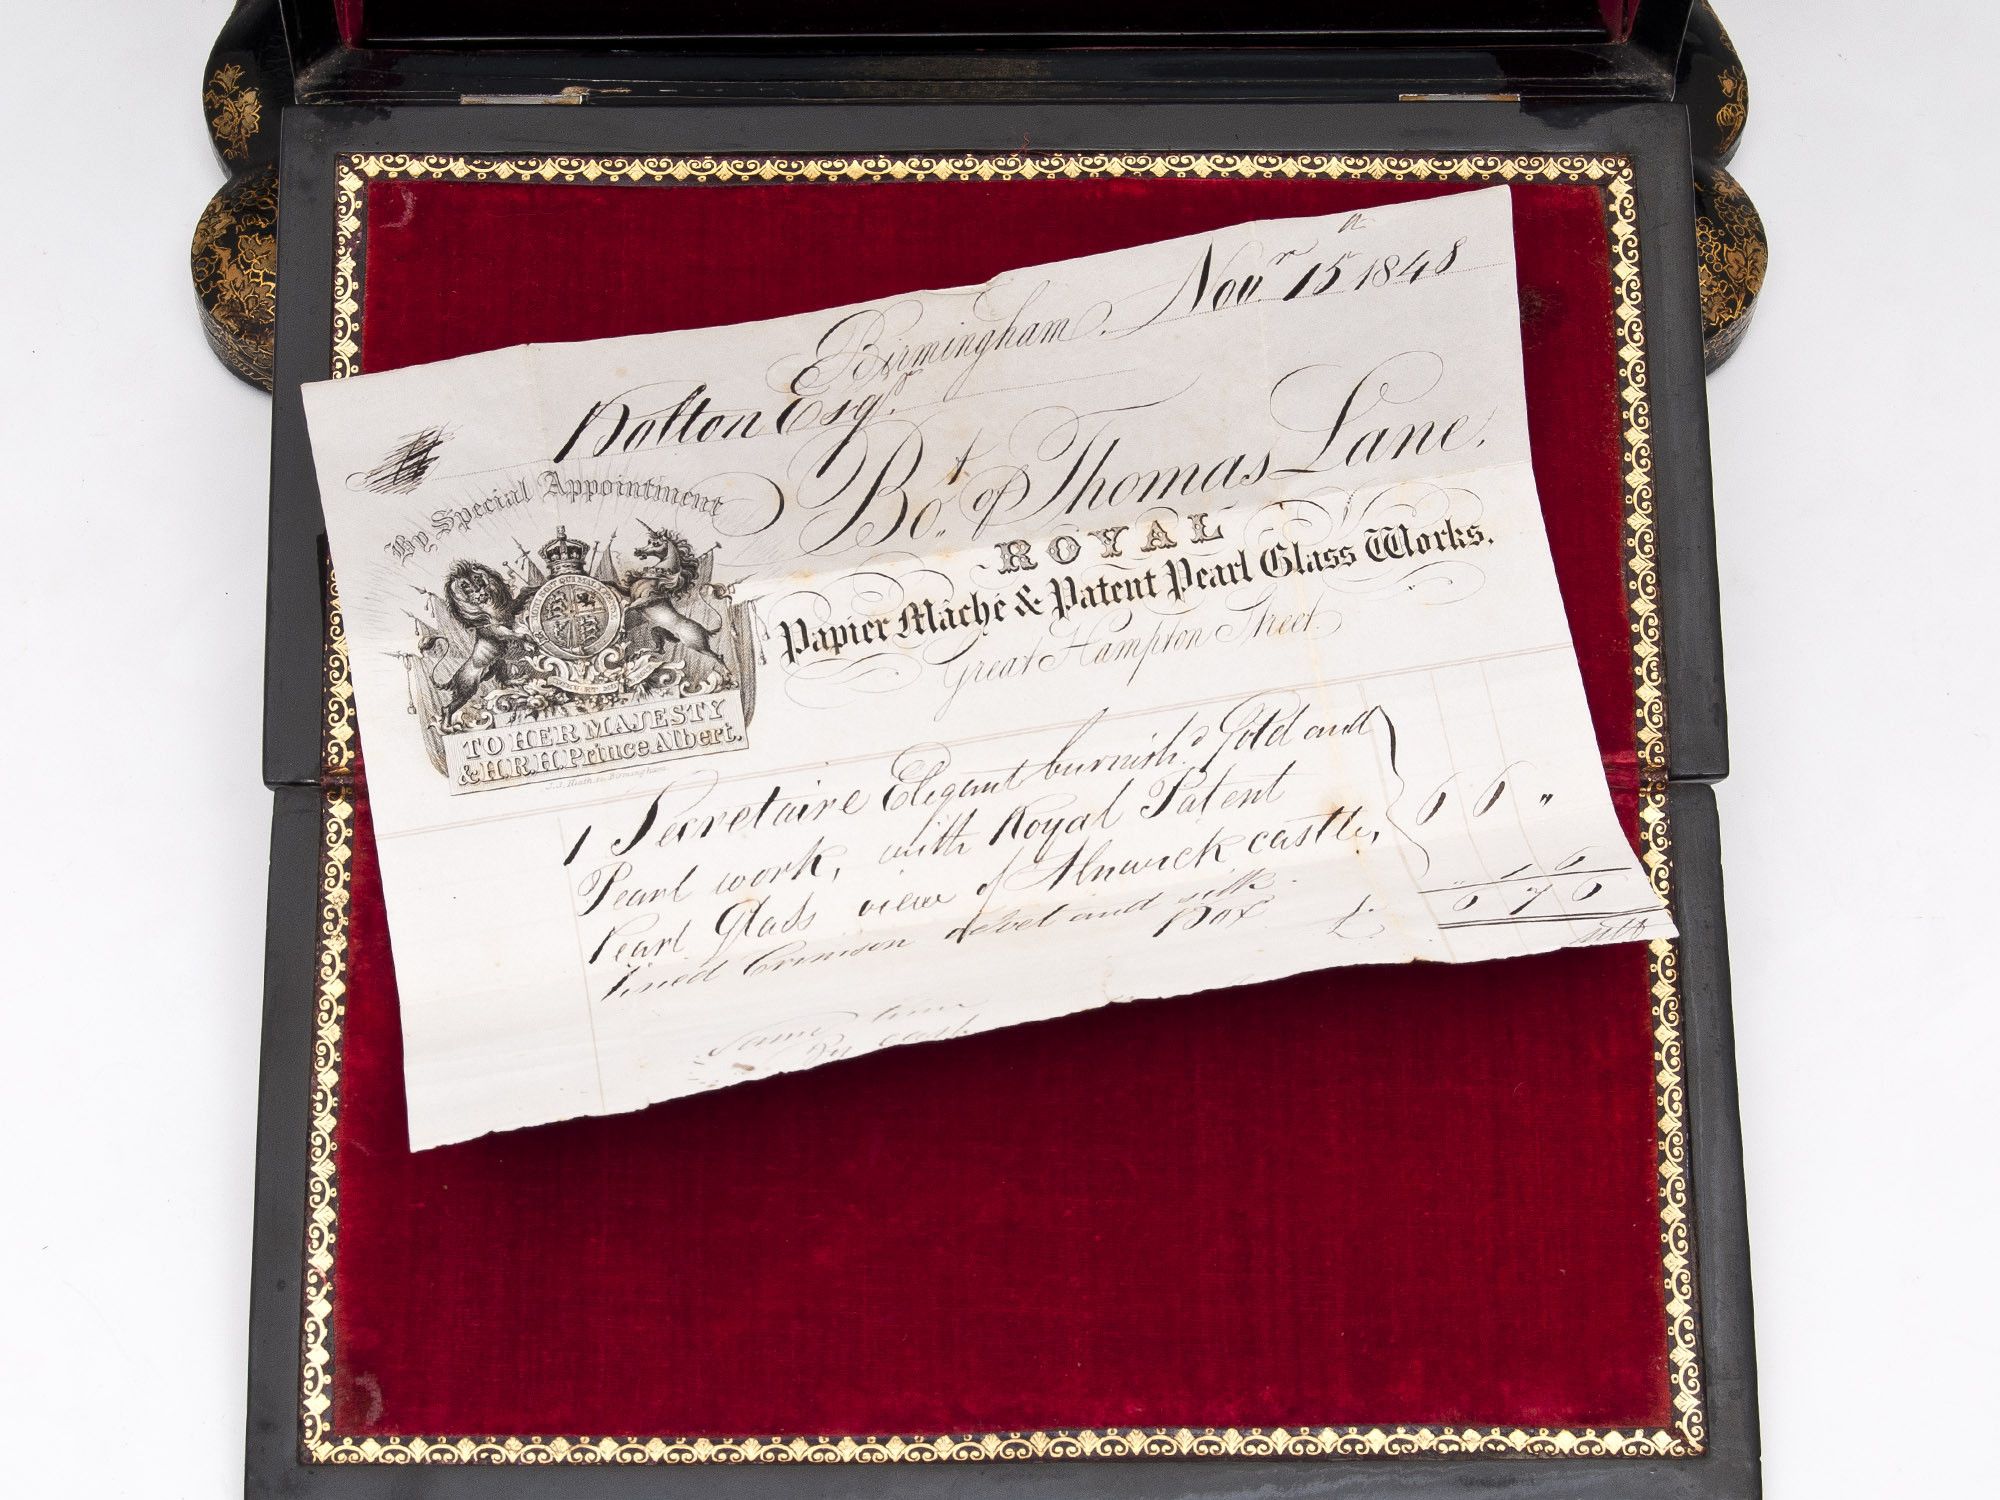 Birmingham, Nov.r 15th 1848
Bolton Esqr.
Bot. of Thomas Lane,
By Special Appointment
ROYAL
Papier Mâché & Patent Pearl Glass Works,
Great Hampton Street.
TO HER MAJESTY
& H.R.H. Prince Albert.
J.J. Heath sc. Birmingham
1 Secretaire Elegant burnishd. Gold and
Pearl work, with Royal Patent
Pearl Glass view of Alnwick castle, 6 6 "
lined Crimson velvet and silk.
Box " 1 6
£ 6 7 6
Same time
By cash